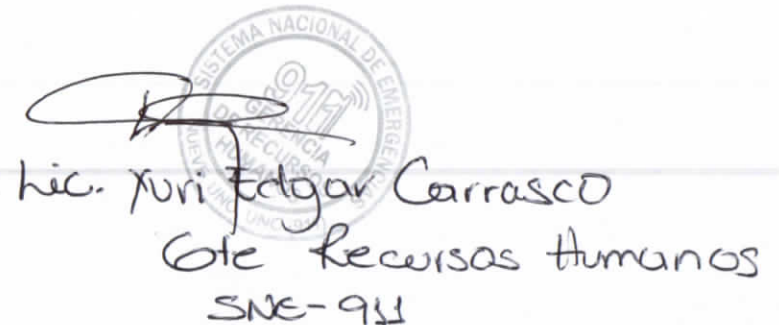 SISTEMA NACIONAL DE EMERGENCIAS
911
GERENCIA
DE RECURSOS
HUMANOS
NUEVE UNO UNO-911
Lic. Yuri Edgar Carrasco
Gte Recursos Humanos
SNE-911